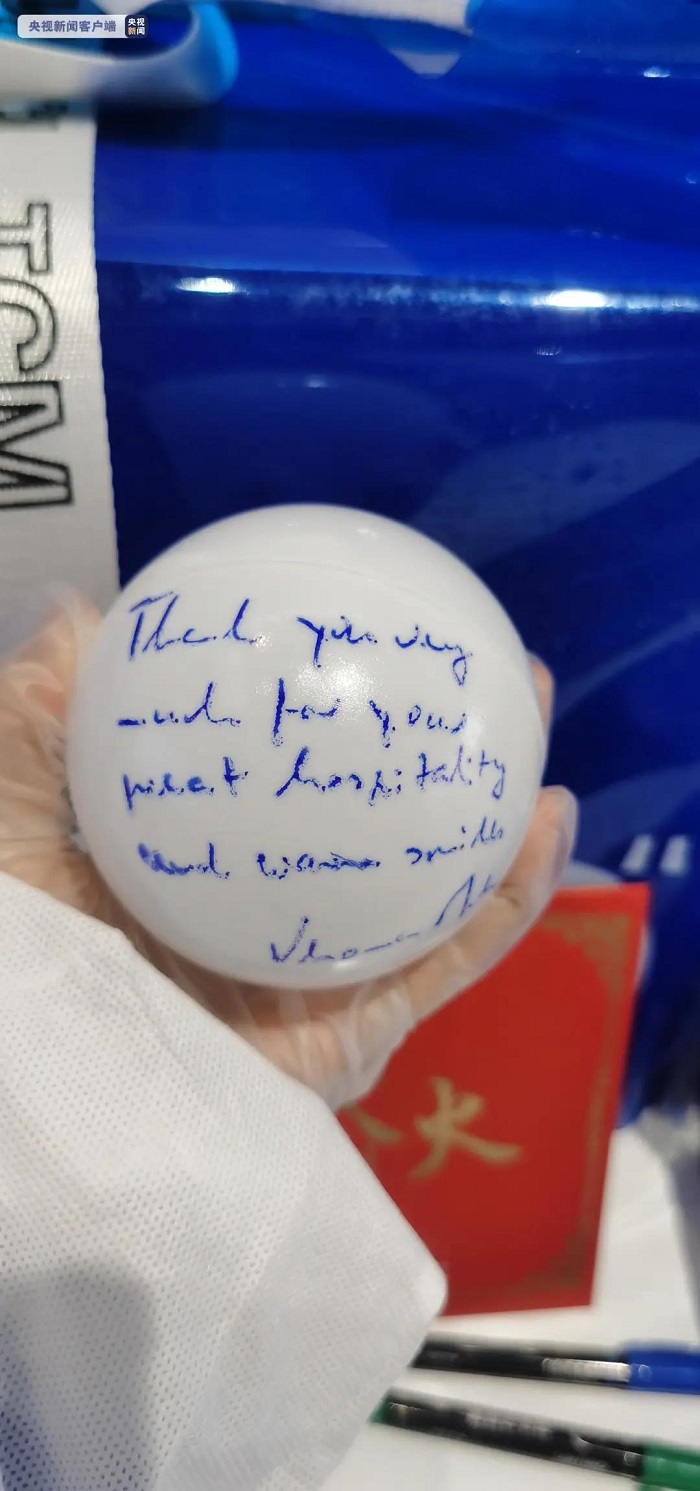 央视新闻客户端 央视新闻
TCM
Thank you very
much for your
great hospitality
and warm smiles
火